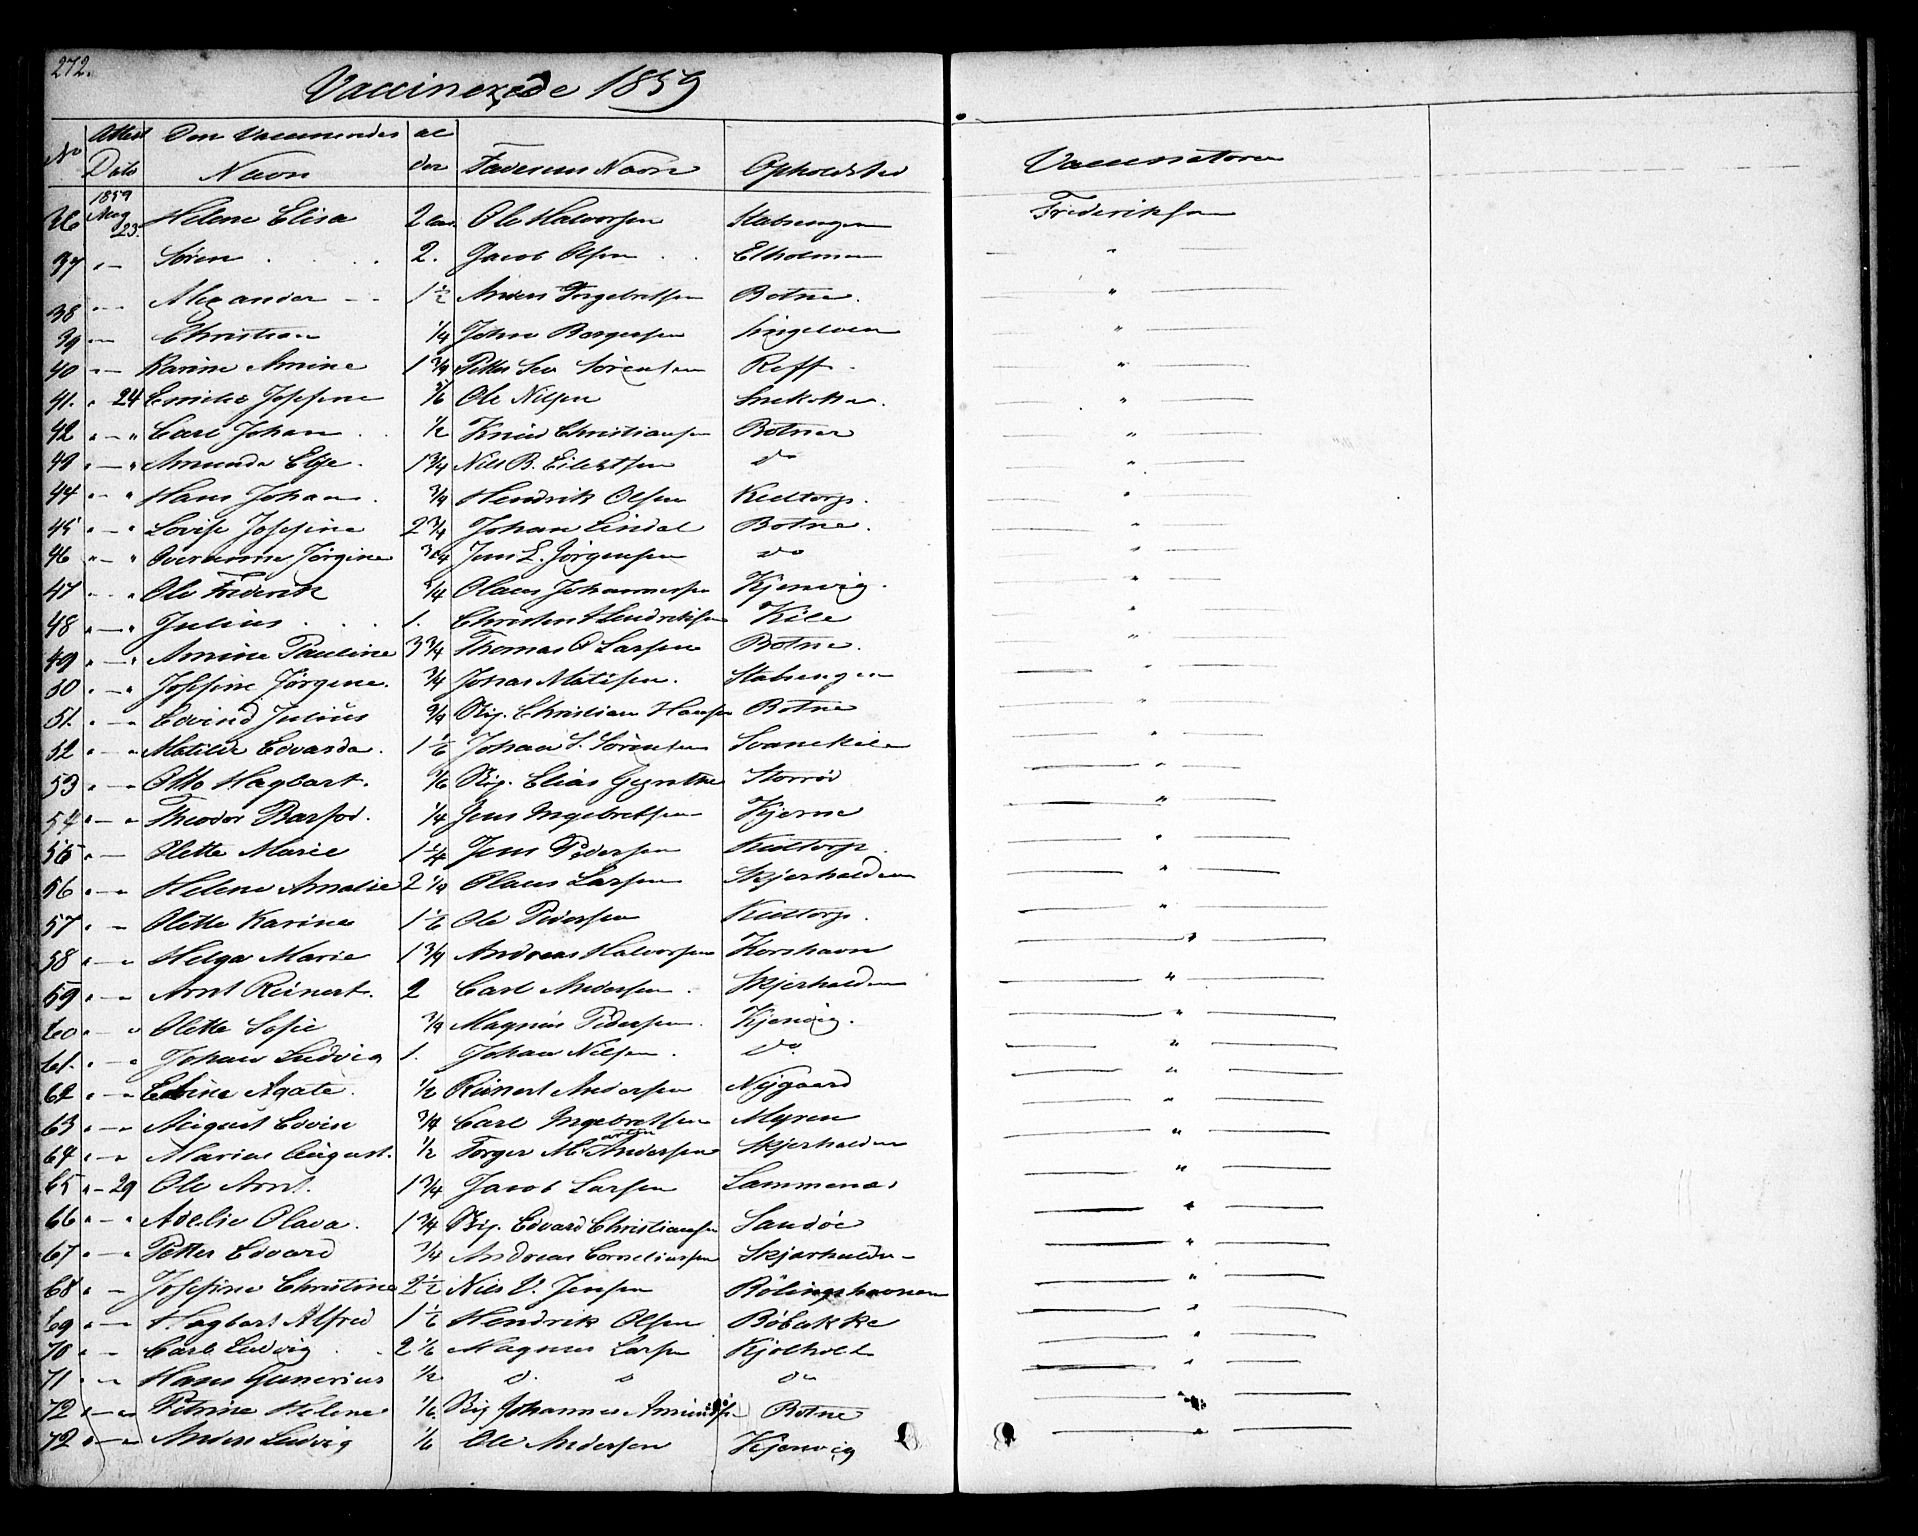 272.
Vaccinerede 1859
No Attest Dato Den Vaccineredes Navn al der Faderens Navn Opholdsted Vaccinatoren
1859
36 Aug 23. Helene Elisa 2 Ole Halvorsen Stabsengen Frideriksen
37 " — Søren 2. Jacob Olsen Elholmen — " —
38 " — Alexander 1½ Anders Ingebretsen Botne. — " —
39 " — Christian ¼ Johan Borgersen — " —
40 " — Karine Amine 1¾ Petter Sørensen Roff — " —
41. " 24 Emilie Josefine Ole Nilsen — " —
42 " — " Carl Johan ½ Knud Christiansen Botner — " —
43 " — " Amunda Else. 1¾ Nils B. Eilertsen do — " —
44 " — " Hans Johan ¾ Hendrik Olsen Kultorp. — " —
45 " — " Lovise Josefine 2¾ Johan Lindal Botne. — " —
46 " — " Jørgine Jens L. Jørgensen do — " —
47 " — " Ole Frederik ¾ Olaus Johannessen Kjenvig. — " —
48 " — " Julius 1. Christen Hendriksen Kile — " —
49 " — " Amine Pauline 3¾ Thomas O Larsen Botne. — " —
50 " — " Josefine Jørgine. ¾ Johan Matisen. Stabsengen — " —
51. " — " Edvind Julius ¾ Christian Hansen Botne — " —
52 " — " Matilde Edvarda. 1½ Johan S. Sørensen Svanekile — " —
53 " — " Otto Hagbart. Elias Storrød — " —
54 " — " Theodor Barfod. ¼ Jens Ingebretsen Kjerne — " —
55 " — Olette Marie 1¼ Jens Pedersen Kultorp. — " —
56 " — " Helene Amalie 2¼ Olaus Larsen Skjerhalden — " —
57 " — " Olette Karine 1½ Ole Pedersen Kultorp. — " —
58 " — " Helga Marie 1¾ Andreas Halvorsen Korshavn — " —
59 " — " Arnt Reinert. 2 Carl Andersen. Skjerhalden — " —
60 " — " Olette Sofie ¾ Magnus Pedersen. Kjenvig. — " —
61. " — " Johan Ludvig 1. Johan Nilsen. do — " —
62 " — " Eline Agate. ½ Reinert Andersen Nygaard — " —
63 " — " August Edvin ¾ Carl Ingebretsen Myren — " —
64 " — " Marius August. ½ Torger M Andersen Skjerhalden — " —
65 " — 29 Ole Arnt. 1¾ Jacob Larsen — " —
66 " — " Adelie Olava. 1¾ Edvard Christiansen Sandøe — " —
67 " — " Petter Edvard ¾ Andreas Corneliussen Skjærhalden — " —
68 " — Josefine Christine 2½ Nils V. Jensen Rølingshavnen — " —
69 " — " Hagbart Alfred 1½ Hendrik Olsen Bøbakke — " —
70 " — Carl Ludvig 2 Magnus Larsen Kjølholt — " —
71 " — " Hans Gunerius ½ d. o do — " —
72 " — " Petrine Helene Johannes Amundsen Botne — " —
72 " — " Anders Ludvig Ole Andersen Kjenvig — " —